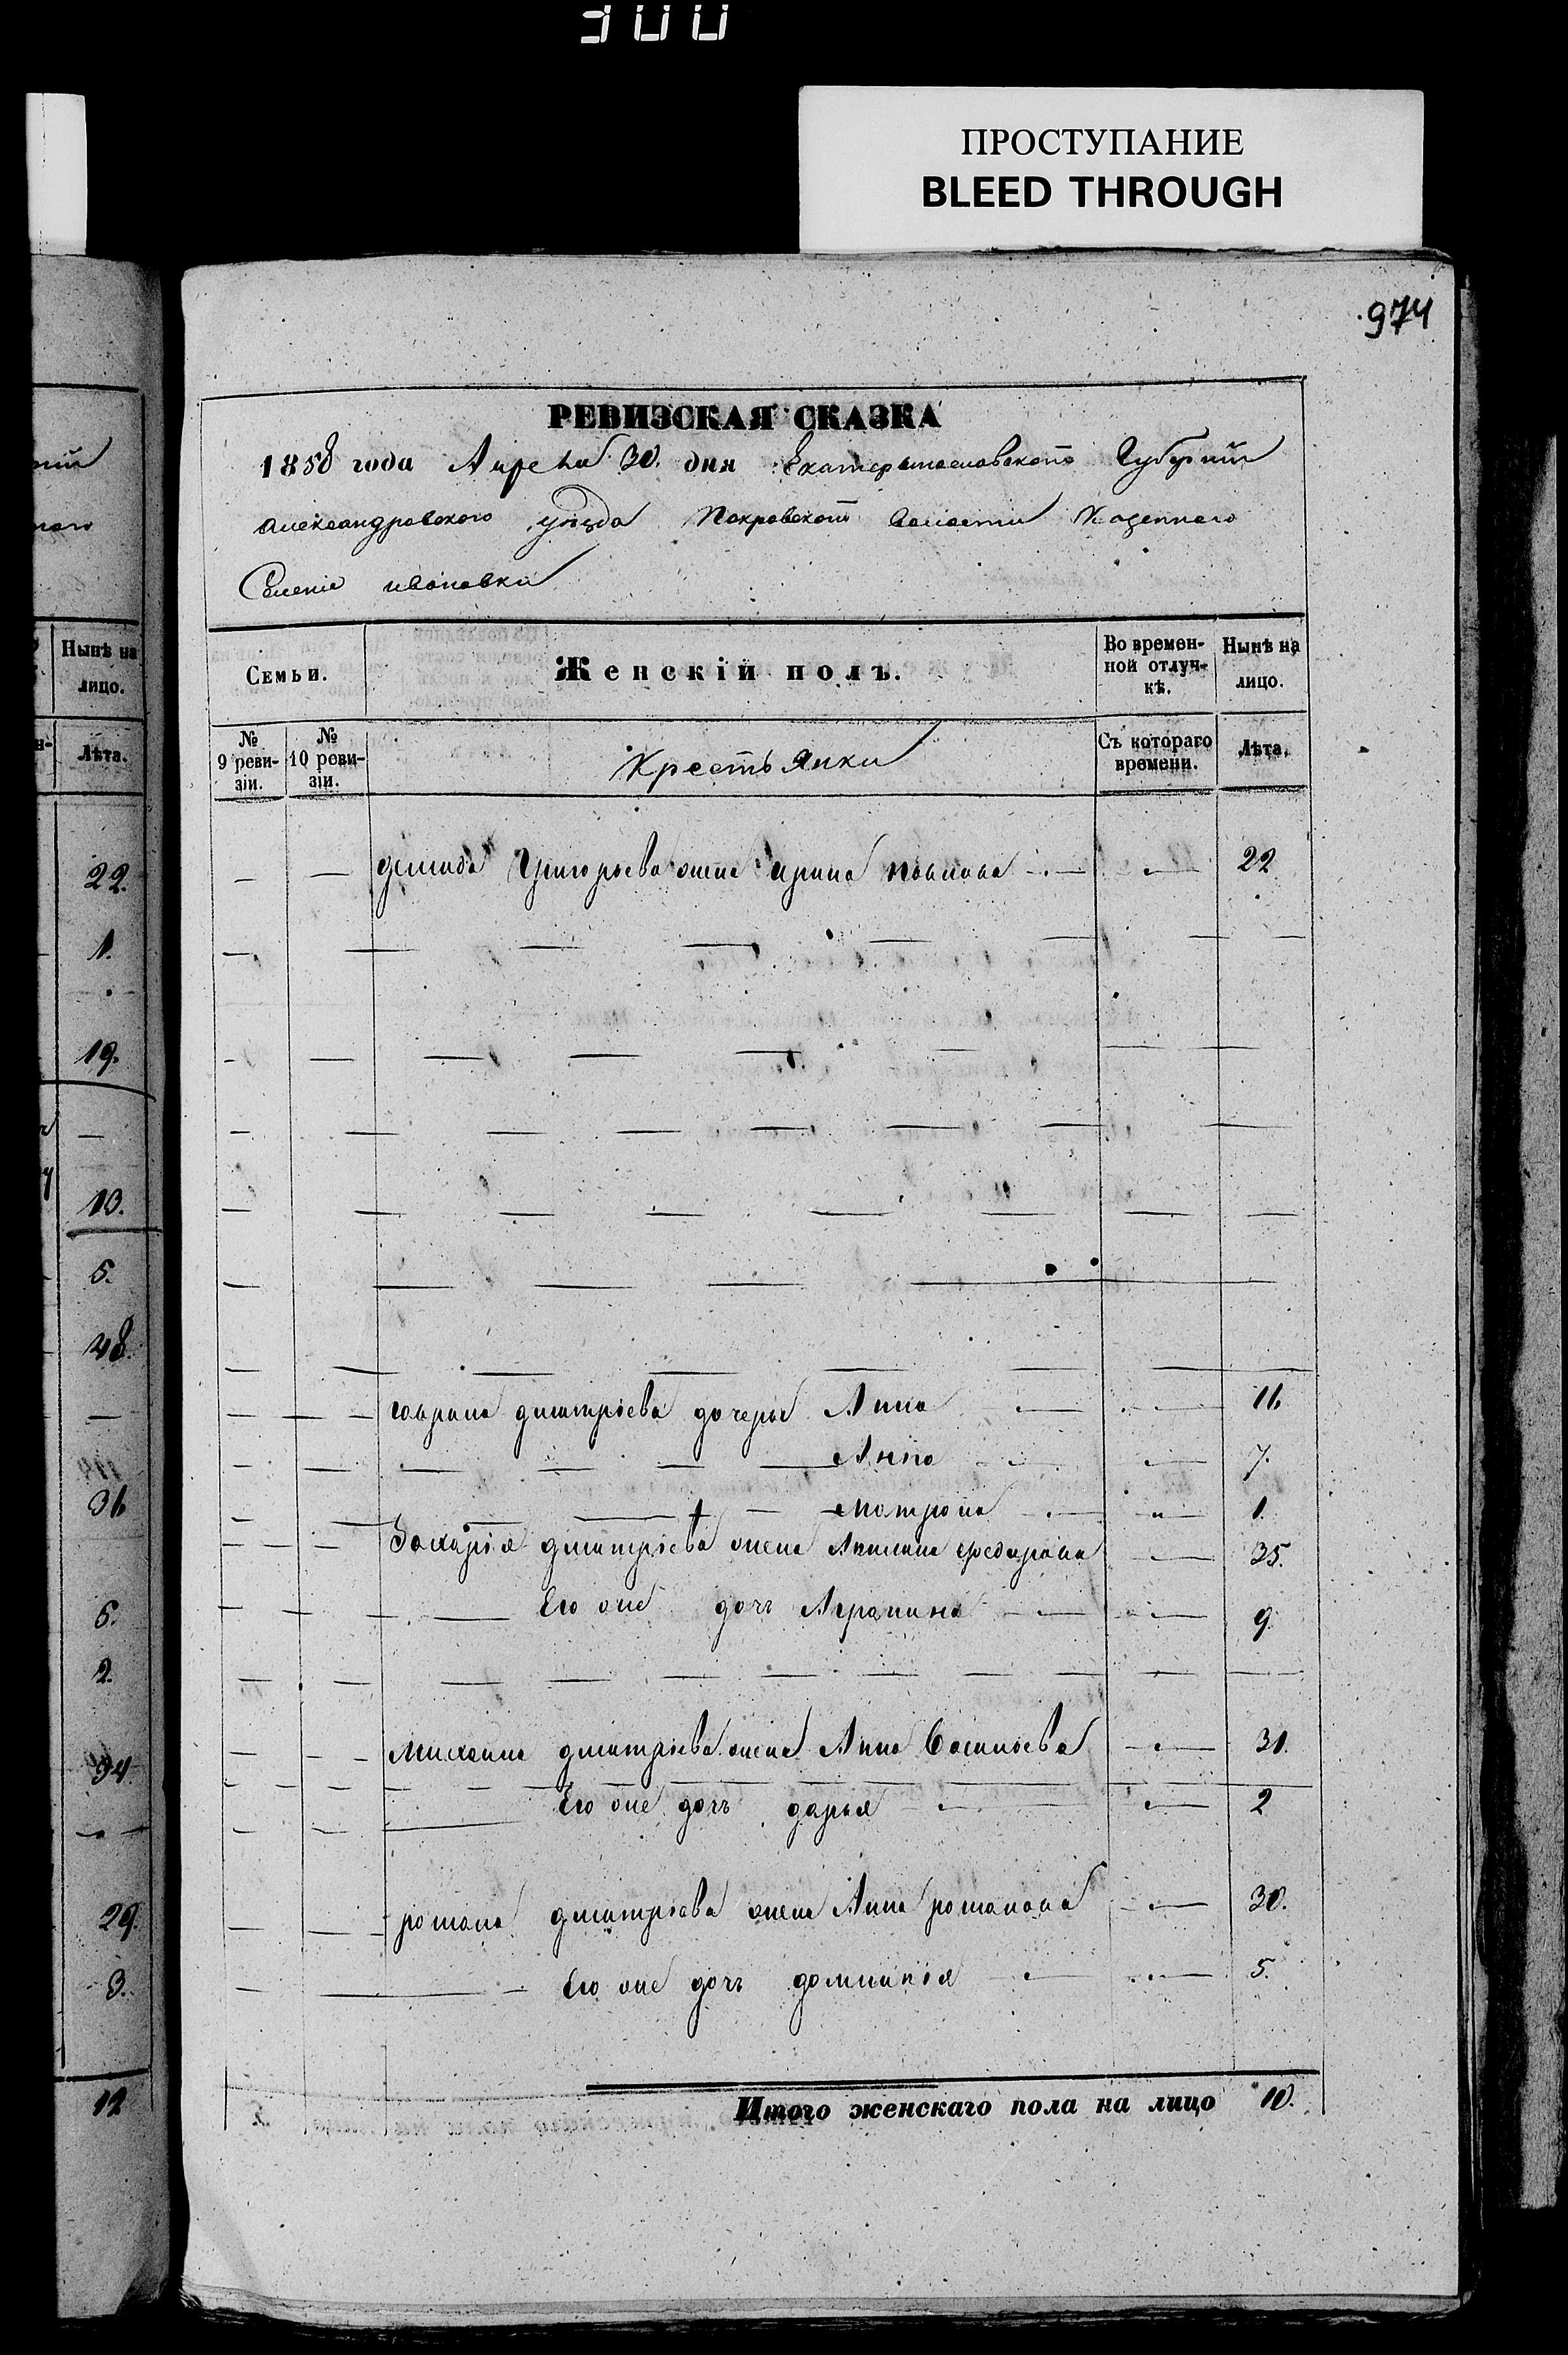 300
ПРОСТУПАНИЕ
BLEED THROUGH
974
РЕВИЗСКАЯ СКАЗКА
1858 года Апреля 30. дня Екатеринославской Губернии
Александровского уезда Покровской волости Казенного
Селения ивановки
Нынѣ на лицо.
Лѣта.
22.
1.
19.
13.
5.
48.
36
6.
2.
34
29.
3.
12
Семьи.
Женскій полъ.
Во времен-
ной отлуч-
кѣ.
Нынѣ на
лицо.
№
9 реви-
зіи.
№
10 реви-
зіи.
Крестьянки
Съ котораго
времени.
Лѣта.
Григорьева жена ирина павлова 22
гаврила дмитріева дочери Анна 11
Анна 7.
Матрона 1.
Захарія дмитріева жена федорова 35.
Его же дочь 9
михаила дмитріева жена Анна Васильева 31.
Его же дочь дарья 2
романа дмитріева жена Анна романова 30.
Его же дочь домникія 5.
Итого женскаго пола на лицо 10.